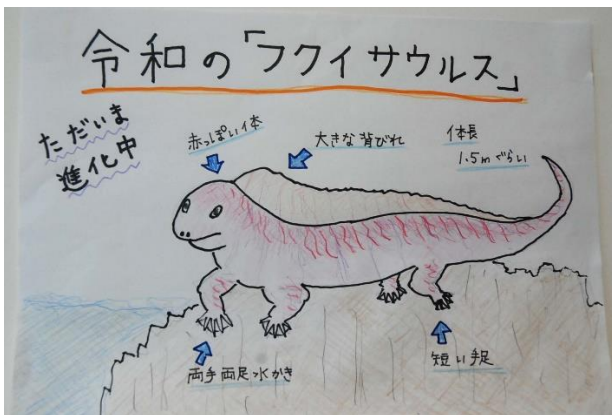 令和の「フクイサウルス」
ただいま
進化中
赤っぽい体
大きな背びれ
体長
1.5mぐらい
両手両足水かき
短い手足